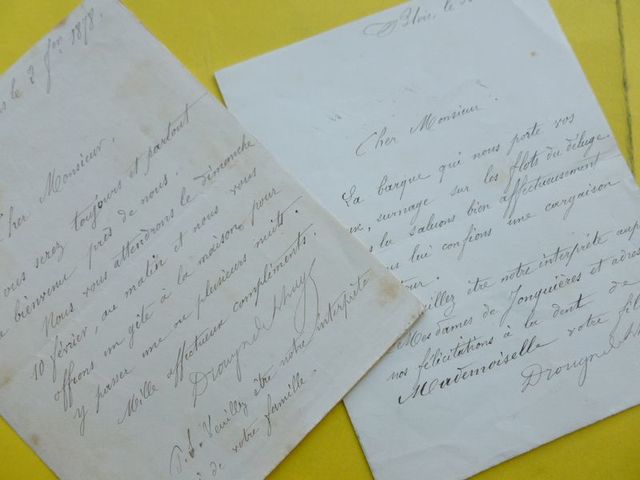 le 2 Jer. 1878.
Cher Monsieur,
vous serez toujours et partout
bienvenu près de nous.
Nous vous attendrons le dimanche
10 février, au matin et nous vous
offrons un gîte à la maison, pour
y passer une ou plusieurs nuits.
Mille affectueux compliments.
Drouyn de Lhuys
P.S. Veuillez être notre interprète
de votre famille.
Blois, le
Cher Monsieur.
La barque qui nous porte vos
surnage sur les flots du déluge.
la saluons bien affectueusement
lui confions une cargaison
être notre interprète
Mesdames de Jonquières et
nos félicitations à la dent de
Mademoiselle votre
Drouyn de